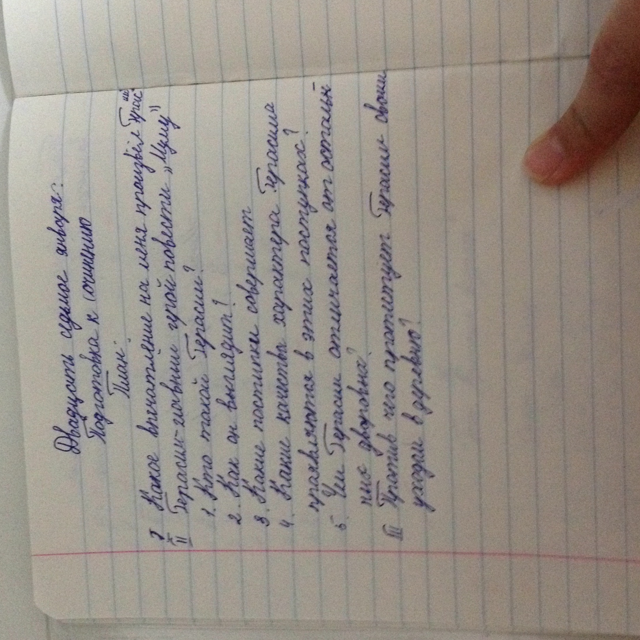 Двадцать седьмое января.
Подготовка к сочинению
План.
I Какое впечатление на меня произвёл Герасим
II Герасим-главный герой повести „Муму"
1. Кто такой Герасим?
2. Как он выглядит?
3. Какие поступки совершает
4. Какие качества характера Герасима
проявляются в этих поступках?
5. Чем Герасим отличается от остальных
дворовых?
III Против чего протестует Герасим своим
уходом в деревню?